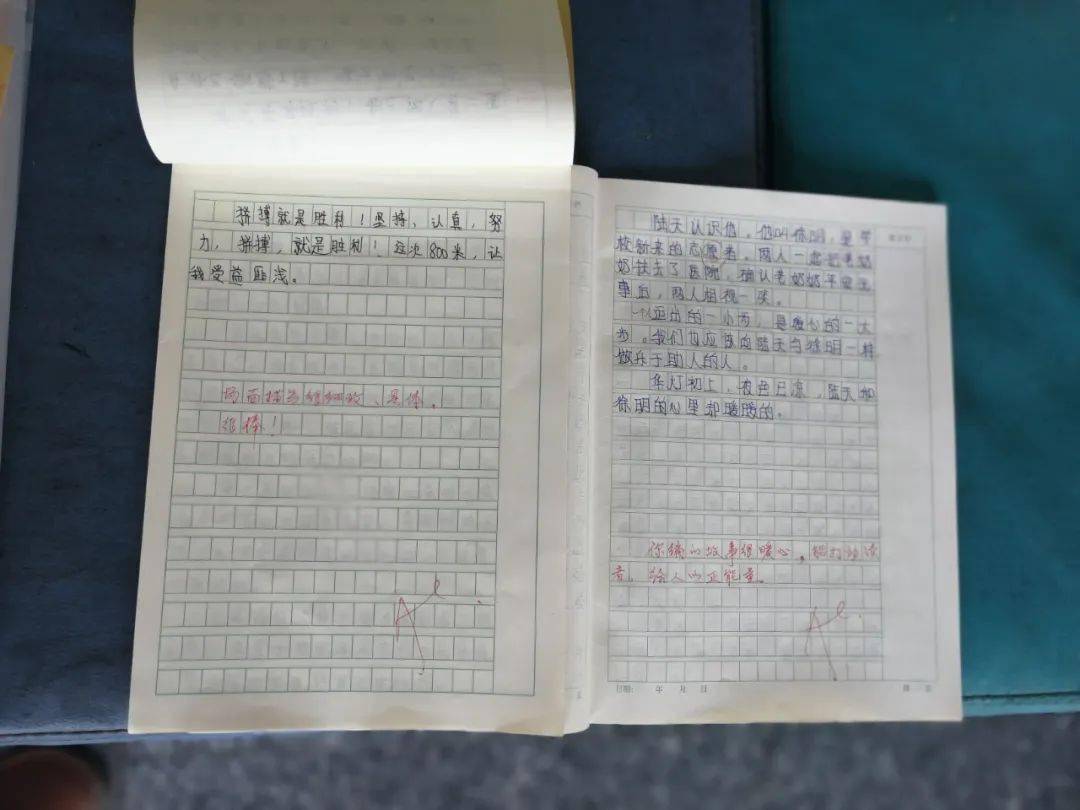 拼搏就是胜利！坚持，认真，努
力，拼搏，就是胜利！这次800米，让
我受益匪浅。
场面描写很细致、具体，
很棒！
陆天认识他。他叫徐明，是学
校新来的志愿者。两人一起把老奶
奶扶去了医院，确认老奶奶平安无
事后，两人相视一笑。
迈出的一小步，是暖心的一大
步。我们也应该向陆天与徐明一样
做乐于助人的人。
华灯初上，夜色已凉，陆天和
徐明的心里却暖暖的。
你编的故事很暖心，能打动读
者，给人以正能量。
日期： 年 月 日